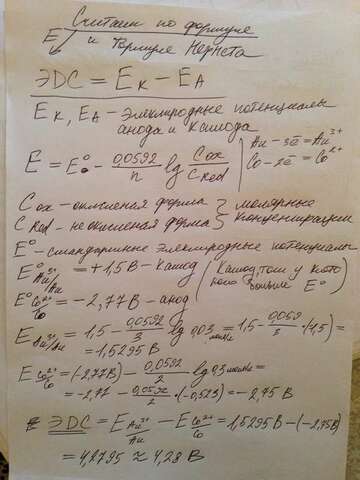 Считаем по формуле
E и формуле Нернста
ЭДС = Eк − EА
Eк, EА − электродные потенциалы
анода и катода
E = E° − 0,0592/n lg Cox/Cred
Au − 3ē = Au³⁺
Co − 2ē = Co²⁺
Cox − окисленная форма } молярные
Cred − неокисленная форма } концентрации
E° − стандартные электродные потенциалы
E° Au³⁺/Au = +1,5В − катод (Катод, том у кото
E° Co²⁺/Co = −2,77В − анод рого больше E°)
E Au³⁺/Au = 1,5 − 0,0592/3 lg 0,03 моль/л = 1,5 − 0,059/3 · (−1,5) =
= 1,5295 В
E Co²⁺/Co = (−2,77В) − 0,0592/2 lg 0,3 моль/л =
= −2,77 − 0,0592/2 · (−0,523) = −2,75 В
ЭДС = E Au³⁺/Au − E Co²⁺/Co = 1,5295В − (−2,75В)
= 4,2795 ≈ 4,28 В